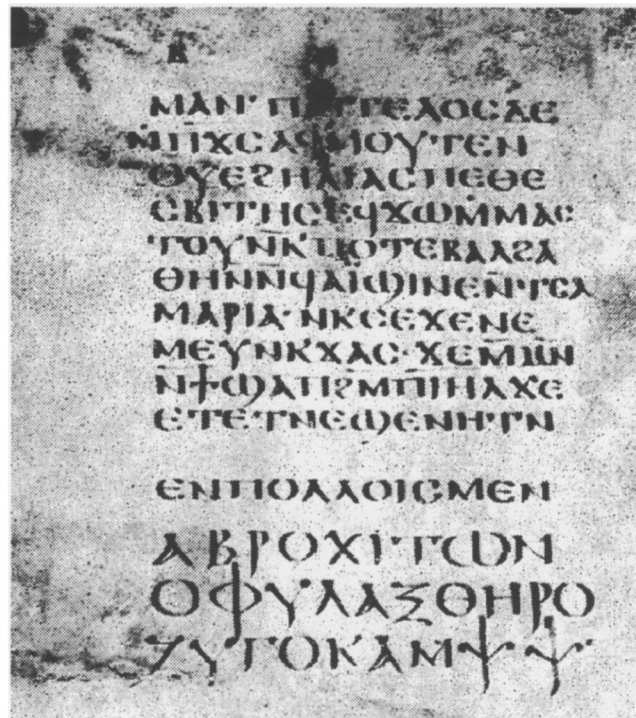 ⲃ
ⲙⲁⲛ' ⲡⲁⲅⲅⲉⲗⲟⲥⲇⲉ
ⲙ̅ⲡϫⲥⲁϥⲙⲟⲩ'ⲧⲉⲛ
ⲑⲩⲉϩⲏⲗⲓⲁⲥⲡⲉⲑⲉ
ⲥⲃⲓⲧⲏⲥⲉϥϫⲱⲙ̅ⲙⲁⲥ
ⲧⲟⲩⲛⲕⲡⲟⲧⲉⲃⲁⲗϩⲁ
ⲑⲏⲛ̅ⲛϥⲁⲓ̈ϣⲓⲛⲉⲛ̅ⲧⲥⲁ
ⲙⲁⲣⲓⲁ· ⲛⲕ̅ⲥⲉϫⲉⲛⲉ
ⲙⲉⲩⲛⲕϫⲁⲥ· ϫⲉⲙⲙⲛ
ⲛϯϣⲁⲡϩⲙⲡⲓⲏⲗϫⲉ
ⲉⲧⲉⲧⲛⲉϣⲉⲛⲏⲧⲛ
ⲉⲛⲡⲟⲗⲗⲟⲓⲥⲙⲉⲛ
ⲁⲃⲣⲟⲭⲓⲧⲱⲛ
ⲟⲫⲩⲗⲁⲝⲑⲏⲣⲟ
ⲍⲩⲅⲟⲕⲁⲙⲯ ⲯ